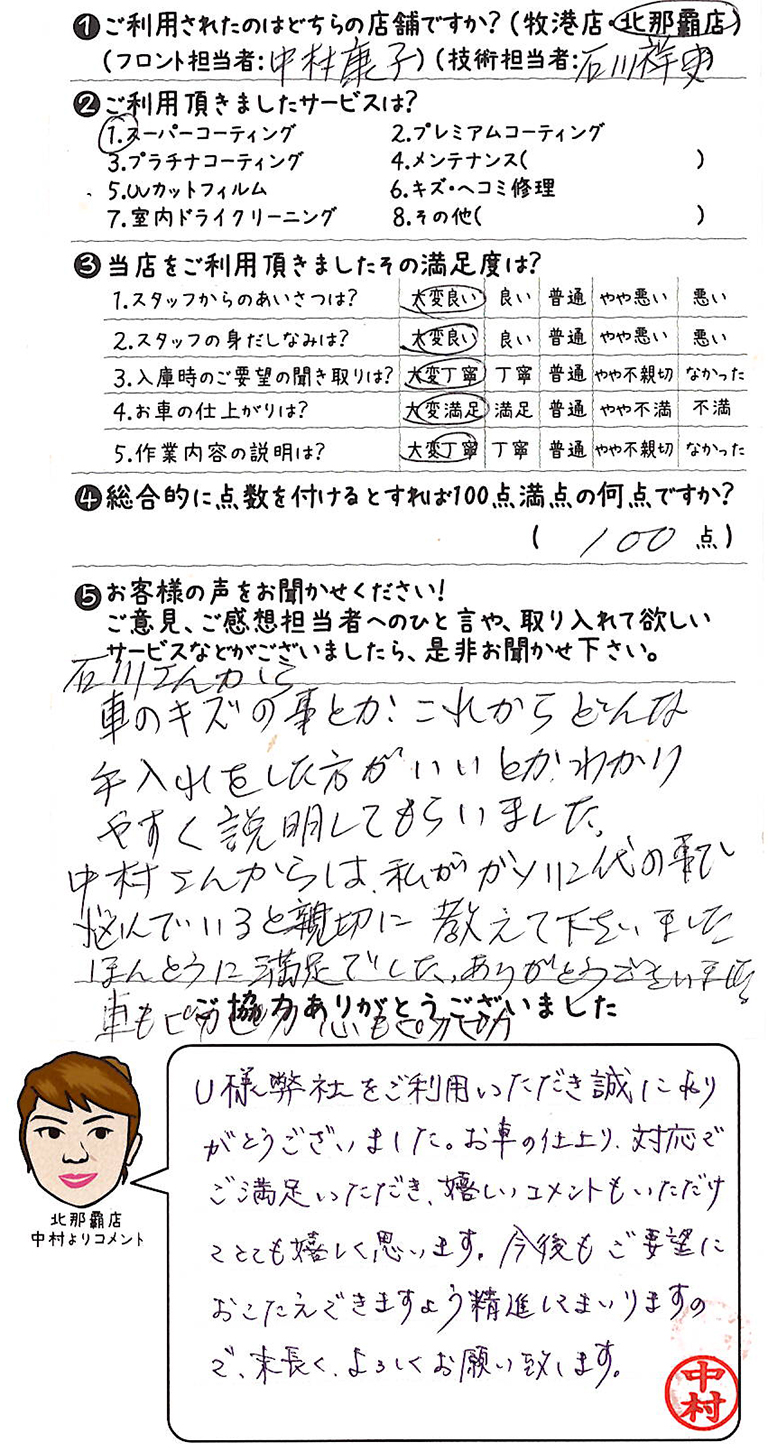 ❶ご利用されたのはどちらの店舗ですか?(牧港店・北那覇店)
(フロント担当者:中村康子)(技術担当者:石川祥史)
❷ご利用頂きましたサービスは?
1.スーパーコーティング 2.プレミアムコーティング
3.プラチナコーティング 4.メンテナンス( )
5.UVカットフィルム 6.キズ・ヘコミ修理
7.室内ドライクリーニング 8.その他( )
❸当店をご利用頂きましたその満足度は?
1.スタッフからのあいさつは? 大変良い 良い 普通 やや悪い 悪い
2.スタッフの身だしなみは? 大変良い 良い 普通 やや悪い 悪い
3.入庫時のご要望の聞き取りは? 大変丁寧 丁寧 普通 やや不親切 なかった
4.お車の仕上がりは? 大変満足 満足 普通 やや不満 不満
5.作業内容の説明は? 大変丁寧 丁寧 普通 やや不親切 なかった
❹総合的に点数を付けるとすれば100点満点の何点ですか?
( 100 点)
❺お客様の声をお聞かせください!
ご意見、ご感想担当者へのひと言や、取り入れて欲しい
サービスなどがございましたら、是非お聞かせ下さい。
石川さんから
車のキズの事とか、これからどんな
手入れをした方がいいとか、わかり
やすく説明してもらいました。
中村さんからは、私がガソリン代の事で
悩んでいると親切に教えて下さいました
ほんとうに満足でした、ありがとうございます
ご協力ありがとうございました
車もピカピカ 心もピカピカ
U様弊社をご利用いただき誠にあり
がとうございました。お車の仕上り、対応で
ご満足いただき、嬉しいコメントもいただけ
てとても嬉しく思います。今後もご要望に
おこたえできますよう精進してまいりますの
で、末長く、よろしくお願い致します。
北那覇店
中村よりコメント
中村